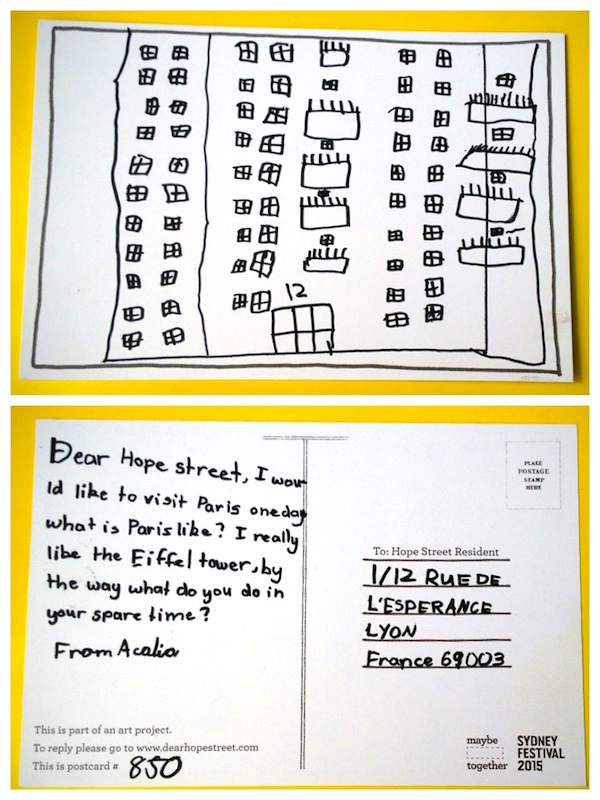 12
Dear Hope street, I wou
ld like to visit Paris oneday
what is Paris like? I really
like the Eiffel tower, by
the way what do you do in
your spare time?
From Acalia
This is part of an art project.
To reply please go to www.dearhopestreet.com
This is postcard # 850
PLACE
POSTAGE
STAMP
HERE
To: Hope Street Resident
1/12 RUE DE
L'ESPERANCE
LYON
France 69003
maybe
together
SYDNEY
FESTIVAL
2015